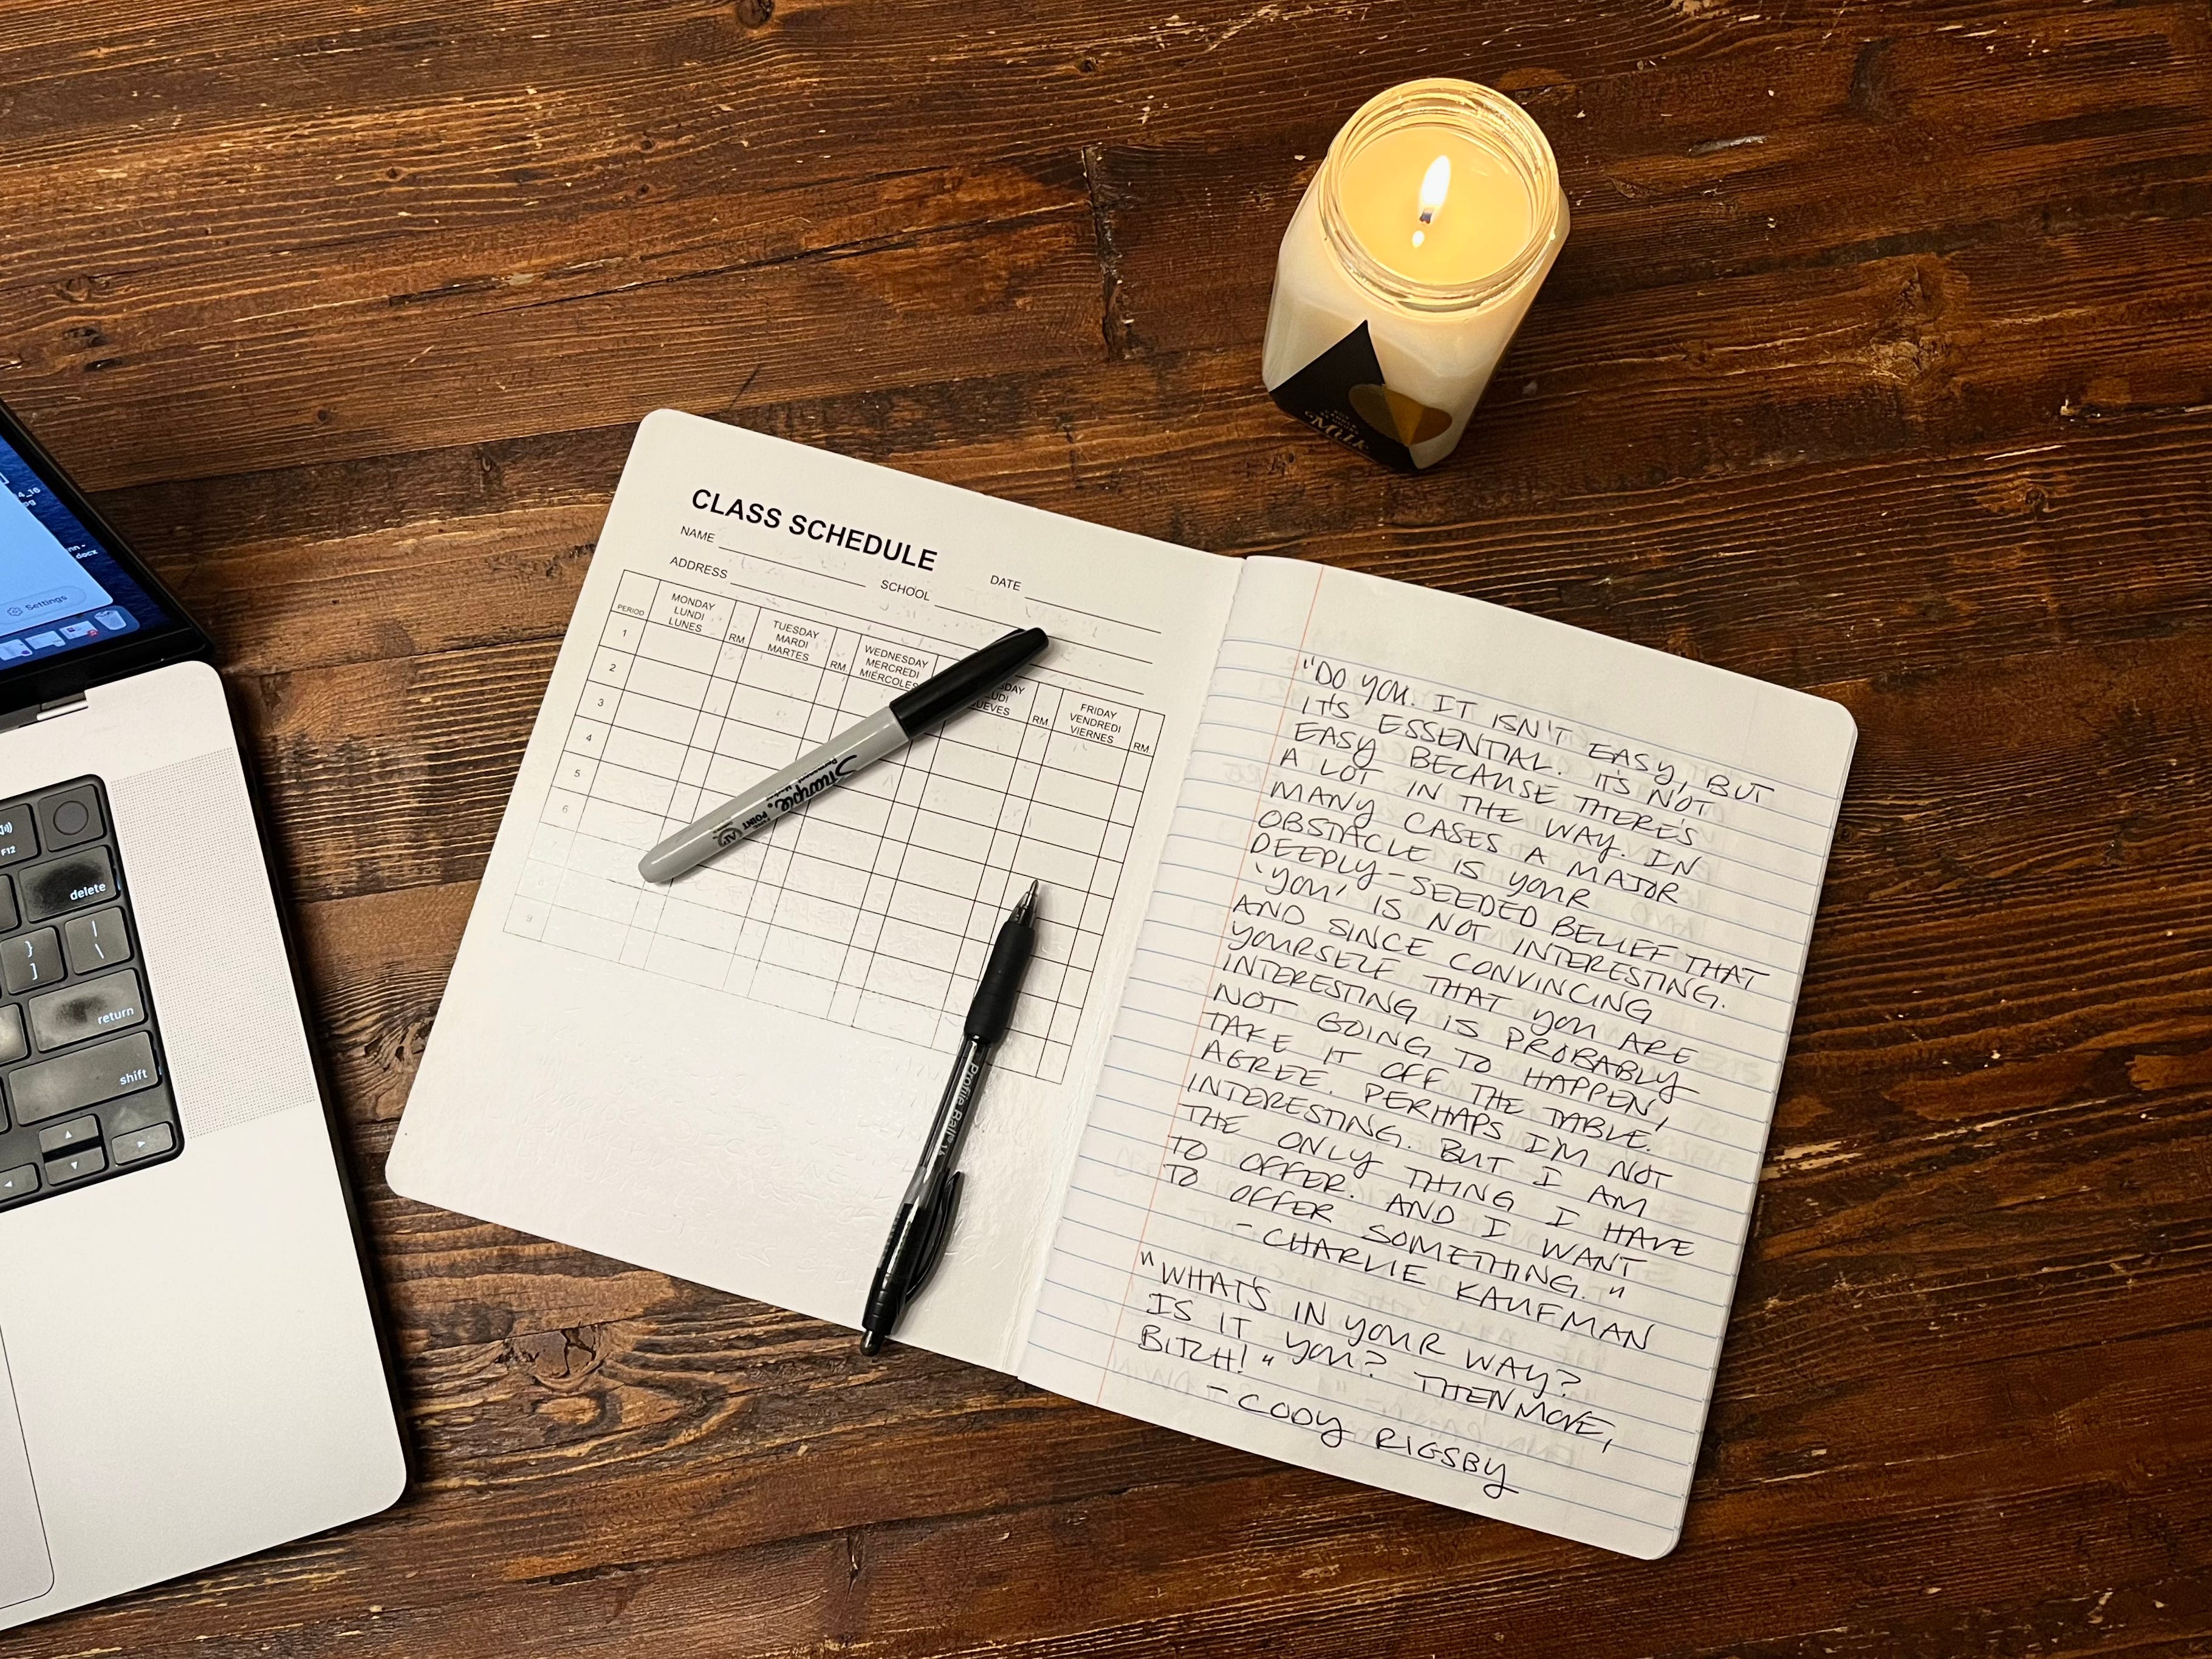 Settings
docx
F12
delete
}
]
|
\
return
shift
Milk
CLASS SCHEDULE
NAME
DATE
ADDRESS
SCHOOL
PERIOD
MONDAY
LUNDI
LUNES
RM
TUESDAY
MARDI
MARTES
RM
WEDNESDAY
MERCREDI
MIÉRCOLES
RM
FRIDAY
VENDREDI
VIERNES
RM
1
2
3
4
5
6
7
8
9
Sharpie
POINT
Profile Ball
"DO YOU. IT ISN'T EASY, BUT
IT'S ESSENTIAL. IT'S NOT
EASY BECAUSE THERE'S
A LOT IN THE WAY. IN
MANY CASES A MAJOR
OBSTACLE IS YOUR
DEEPLY-SEEDED BELIEF THAT
'YOU' IS NOT INTERESTING.
AND SINCE CONVINCING
YOURSELF THAT YOU ARE
INTERESTING IS PROBABLY
NOT GOING TO HAPPEN,
TAKE IT OFF THE TABLE.
AGREE. PERHAPS I'M NOT
INTERESTING. BUT I AM
THE ONLY THING I HAVE
TO OFFER. AND I WANT
TO OFFER SOMETHING."
-CHARLIE KAUFMAN
"WHAT'S IN YOUR WAY?
IS IT YOU? THEN MOVE,
BITCH!"
-CODY RIGSBY